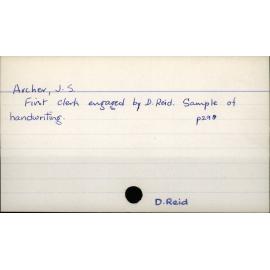 Archer, J. S.
First clerk engaged by D. Reid. Sample of
handwriting. p298
D. Reid